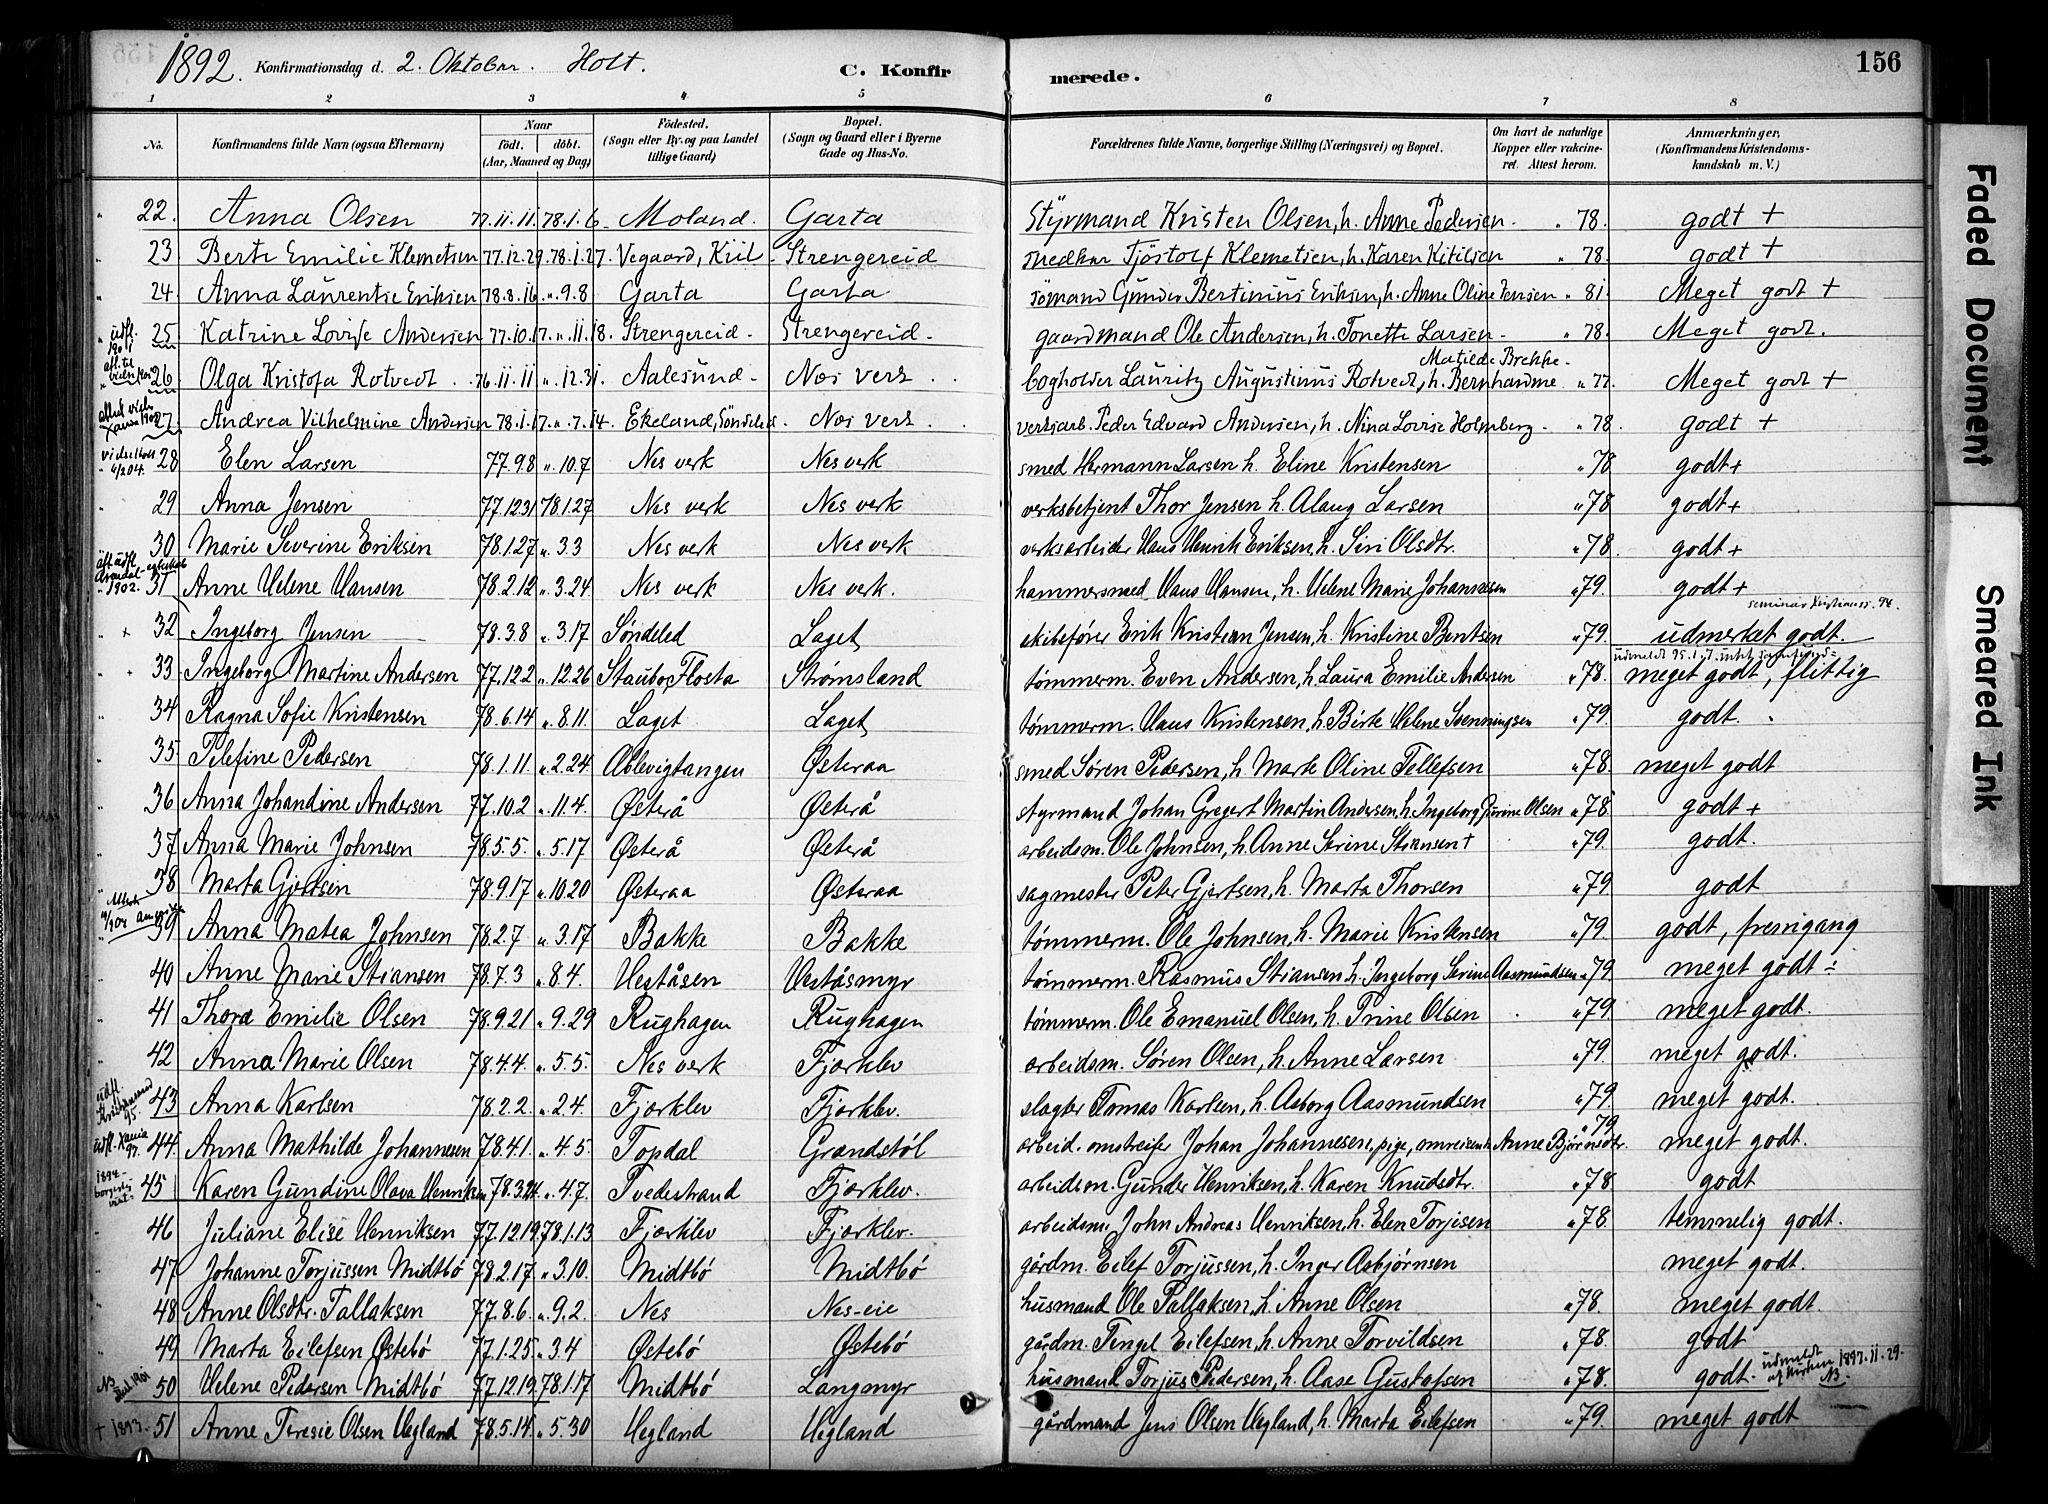 1892. Konfirmationsdag d. 2. Oktober. Holt. C. Konfirmerede. 156
1 2 3 4 5 6 7 8
No. Konfirmandens fulde Navn (ogsaa Efternavn) Naar født. døbt. (Aar, Maaned og Dag) Fødested. (Sogn eller By og paa Landet tillige Gaard) Bopæl. (Sogn og Gaard eller i Byerne Gade og Hus-No. Forældrenes fulde Navne, borgerlige Stilling (Næringsvei) og Bopæl. Om havt de naturlige Kopper eller vaccineret. Attest herom. Anmærkninger. (Konfirmandens Kristendomskundskab m. V.)
22. Anna Olsen 77.11.11. 78.1.6 Moland. Garta Styrmand Kristen Olsen, h. Anne Pedersen - " 78. godt +
23 Berte Emilie Klemetsen 77.12.29. 78.1.27. Vegaard, Kiil - Strengereid snedker Tjøstolf Klemetsen, h. Karen Kitilsen " 78. godt +
24. Anna Laurentse Eriksen 78.8.16 " 9.8 Garta Garta sømand Gunder Bertinius Eriksen, h. Anne Oline Jensen " 81. Meget godt +
25 Katrine Lovise Andersen 77.10.17 " 11.18. Strengereid - Strengereid - gaardmand Ole Andersen, h. Tonette Larsen - " 78. Meget godt.
26 Olga Kristofa Rotvedt 76.11.11 " 12.31. Aalesund - Næs verk bogholder Lauritz Augustinus Rotvedt, h. Bernhardine Matilde Brekke - " 77. Meget godt +
27. Andrea Vilhelmine Andersen 78.1.17 " 7.14. Ekeland, Søndeled - Næs verk verksarb. Peder Edvard Andersen, h. Nina Lovise Holmberg - " 78. godt +
28 Elen Larsen 77.9.8 " 10.7 Nes verk Nes verk smed Hermann Larsen h. Eline Kristensen " 78 godt +
29 Anna Jensen 77.12.31 78.1.27 Nes verk Nes verk verksbetjent Thor Jensen h. Alaug Larsen " 78 godt +
30 Marie Severine Eriksen 78.1.27 " 3.3 Nes verk Nes verk verksarbeider Hans Henrik Eriksen, h. Siri Olsdtr. " 78. godt +
31 Anne Helene Hansen 78.2.12 " 3.24. Nes verk Nes verk. hammersmed Hans Hansen, h. Helene Marie Johannesen " 79. godt +
+ 32 Ingeborg Jensen 78.3.8 " 3.17 Søndeled Laget skibsfører Erik Kristian Jensen, h. Kristine Bentsen " 79. udmerket godt.
+ 33 Ingeborg Martine Andersen 77.12.2 " 12.26 Staubo, Flosta Strømsland tømmerm. Even Andersen, h. Laura Emilie Andersen " 78. meget godt, flittig
34 Ragna Sofie Kristensen 78.6.14 " 8.11. Laget Laget tømmerm. Hans Kristensen, h. Birte Helene Svenningsen " 79 godt.
35 Telefine Pedersen 78.1.11 " 2.24 Ablevigtangen Østeraa smed Søren Pedersen, h. Marte Oline Tellefsen " 78. meget godt
36 Anna Johandine Andersen 77.10.2 " 11.4. Østerå Østerå styrmand Johan Gregert Martin Andersen, h. Ingeborg Gurine Olsen " 78 godt +
37 Anna Marie Johnsen 78.5.5. " 5.17 Østerå Østerå arbeidsm. Ole Johnsen, h. Anne Serine Stiansen + " 79. godt.
38 Marta Gjertsen 78.9.17 " 10.20 Østeraa Østeraa sagmester Peter Gjertsen, h. Marta Thorsen " 79 godt
39 Anna Matea Johnsen 78.2.7 " 3.17 Bakke Bakke tømmerm. Ole Johnsen, h. Marie Kristensen " 79. godt, fremgang
40 Anne Marie Stiansen 78.7.3 " 8.4. Veståsen Veståsmyr tømmerm. Rasmus Stiansen h. Ingeborg Serine Aasmundsen " 79 meget godt
41 Thora Emilie Olsen 78.9.21 " 9.29 Rughagen Rughagen tømmerm. Ole Emanuel Olsen, h. Trine Olsen " 79. meget godt.
42 Anna Marie Olsen 78.4.4. " 5.5. Nes verk Fjorklev arbeidsm. Søren Olsen, h. Anne Larsen " 79 meget godt.
43 Anna Karlsen 78.2.2. " 2.4. Fjorklev Fjorklev. slagter Tomas Karlsen, h. Asborg Aasmundsen " 79. meget godt.
44. Anna Mathilde Johannesen 78.4.1. " 4.5. Topdal Grandstøl arbeid. omstreifer Johan Johannesen, pige, omreisende Anne Bjørnsdtr. " 79 meget godt.
45 Karen Gundine Olava Henriksen 78.3.24 " 4.7. Tvedestrand Fjorklev. arbeidsm. Gunder Henriksen, h. Karen Knudsdtr. " 78 godt
46 Juliane Elise Henriksen 77.12.19. 78.1.13 Fjorklev Fjorklev. arbeidsm. John Andreas Henriksen, h. Elen Torjisen " 78. temmelig godt.
47 Johanne Torjussen Midtbö 78.2.17 " 3.10. Midtbö Midtbö gårdm. Eilef Torjussen, h. Inger Asbjørnsen meget godt.
48 Anne Olsdtr. Tallaksen 77.8.6. " 9.2. Nes Nes-eie husmand Ole Tallaksen, h. Anne Olsen " 78. meget godt.
49 Marta Eilefsen Østebö 77.1.25 " 3.4 Østebö Østebö gårdm. Tengel Eilefsen, h. Anne Torvildsen " 78. godt
50 Helene Pedersen Midtbö 77.12.19 78.1.17 Midtbö Langmyr husmand Torjus Pedersen, h. Aase Gustafsen " 78. godt. udmeldt af kirken 1897.11.29. NB
+ 1893. 51 Anne Teresie Olsen Hegland 78.5.14 " 5.30 Hegland Hegland gårdmand Jens Olsen Hegland, h. Marta Eilefsen " 79. meget godt
Faded Document
Smeared Ink